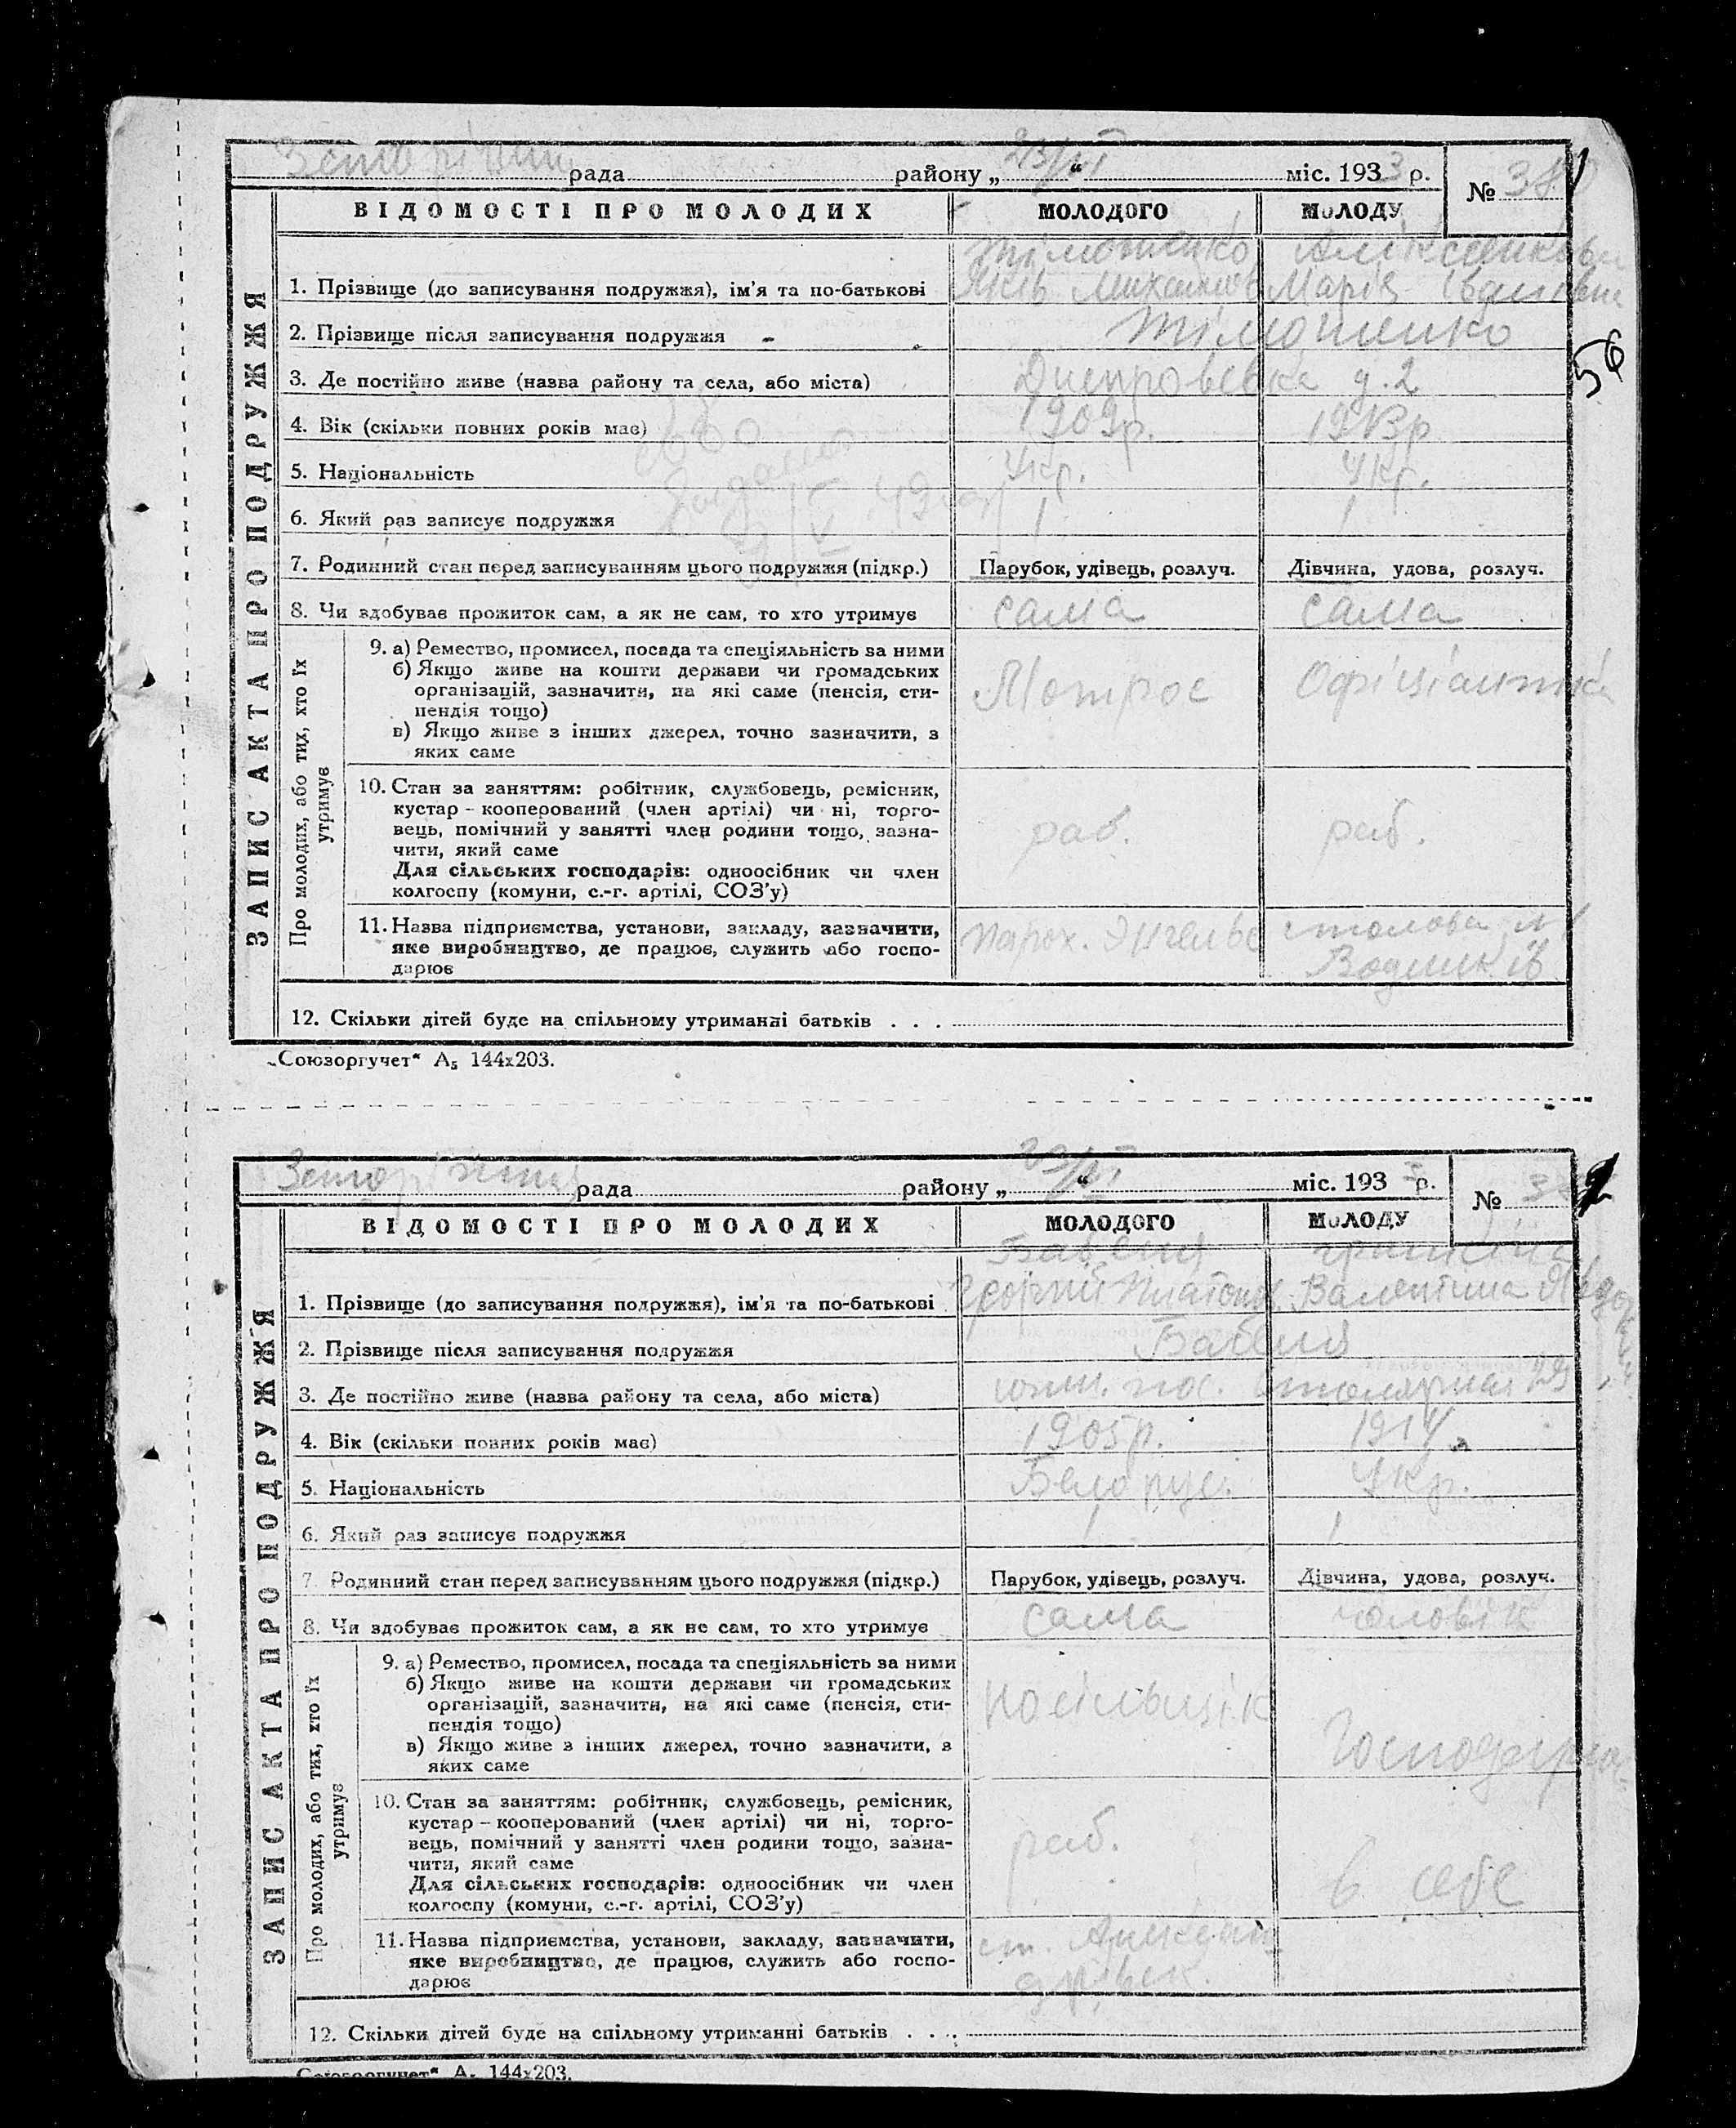 рада району „23/VI“ міс. 1933 р.
№ 38
ВІДОМОСТІ ПРО МОЛОДИХ МОЛОДОГО МОЛОДУ
ЗАПИС АКТА ПРО ПОДРУЖЖЯ
Тімошенко
1. Прізвище (до записування подружжя), ім’я та по-батькові Яків Михайлов Марія Івановна
2. Прізвище після записування подружжя Тімошенко
56
3. Де постійно живе (назва району та села, або міста) Днепровська д. 2
4. Вік (скільки повних років має) 1909р. 1913р
5. Національність Укр. Укр.
6. Який раз записує подружжя 1 1
7. Родинний стан перед записуванням цього подружжя (підкр.) Парубок, удівець, розлуч. Дівчина, удова, розлуч.
8. Чи здобуває прожиток сам, а як не сам, то хто утримує сама сама
Про молодих, або тих, хто їх утримує
9. а) Ремество, промисел, посада та спеціяльність за ними
б) Якщо живе на кошти держави чи громадських
організацій, зазначити, на які саме (пенсія, сти-
пендія тощо)
в) Якщо живе з інших джерел, точно зазначити, з
яких саме
Мотрос Офіціантка
10. Стан за заняттям: робітник, службовець, ремісник,
кустар – кооперований (член артілі) чи ні, торго-
вець, помічний у занятті член родини тощо, зазна-
чити, який саме
Для сільських господарів: одноосібник чи член
колгоспу (комуни, с.-г. артілі, СОЗ’у)
раб. раб.
11. Назва підприємства, установи, закладу, зазначити,
яке виробництво, де працює, служить або госпо-
дарює
парох. Энгельс столова
Водників
12. Скільки дітей буде на спільному утриманні батьків . . .
„Союзоргучет“ А5 144х203.
рада району „ “ міс. 193 р.
№
ВІДОМОСТІ ПРО МОЛОДИХ МОЛОДОГО МОЛОДУ
ЗАПИС АКТА ПРО ПОДРУЖЖЯ
1. Прізвище (до записування подружжя), ім’я та по-батькові Георгий Платон Валентина
2. Прізвище після записування подружжя
3. Де постійно живе (назва району та села, або міста) пос. Столярная 29
4. Вік (скільки повних років має) 1905р. 1914
5. Національність Белорус. Укр.
6. Який раз записує подружжя 1 1
7. Родинний стан перед записуванням цього подружжя (підкр.) Парубок, удівець, розлуч. Дівчина, удова, розлуч.
8. Чи здобуває прожиток сам, а як не сам, то хто утримує сама чоловік
Про молодих, або тих, хто їх утримує
9. а) Ремество, промисел, посада та спеціяльність за ними
б) Якщо живе на кошти держави чи громадських
організацій, зазначити, на які саме (пенсія, сти-
пендія тощо)
в) Якщо живе з інших джерел, точно зазначити, з
яких саме
носільщік
10. Стан за заняттям: робітник, службовець, ремісник,
кустар – кооперований (член артілі) чи ні, торго-
вець, помічний у занятті член родини тощо, зазна-
чити, який саме
Для сільських господарів: одноосібник чи член
колгоспу (комуни, с.-г. артілі, СОЗ’у)
раб. в себе
11. Назва підприємства, установи, закладу, зазначити,
яке виробництво, де працює, служить або госпо-
дарює
ст.
12. Скільки дітей буде на спільному утриманні батьків . . .
Союзоргучет“ А5 144х203.